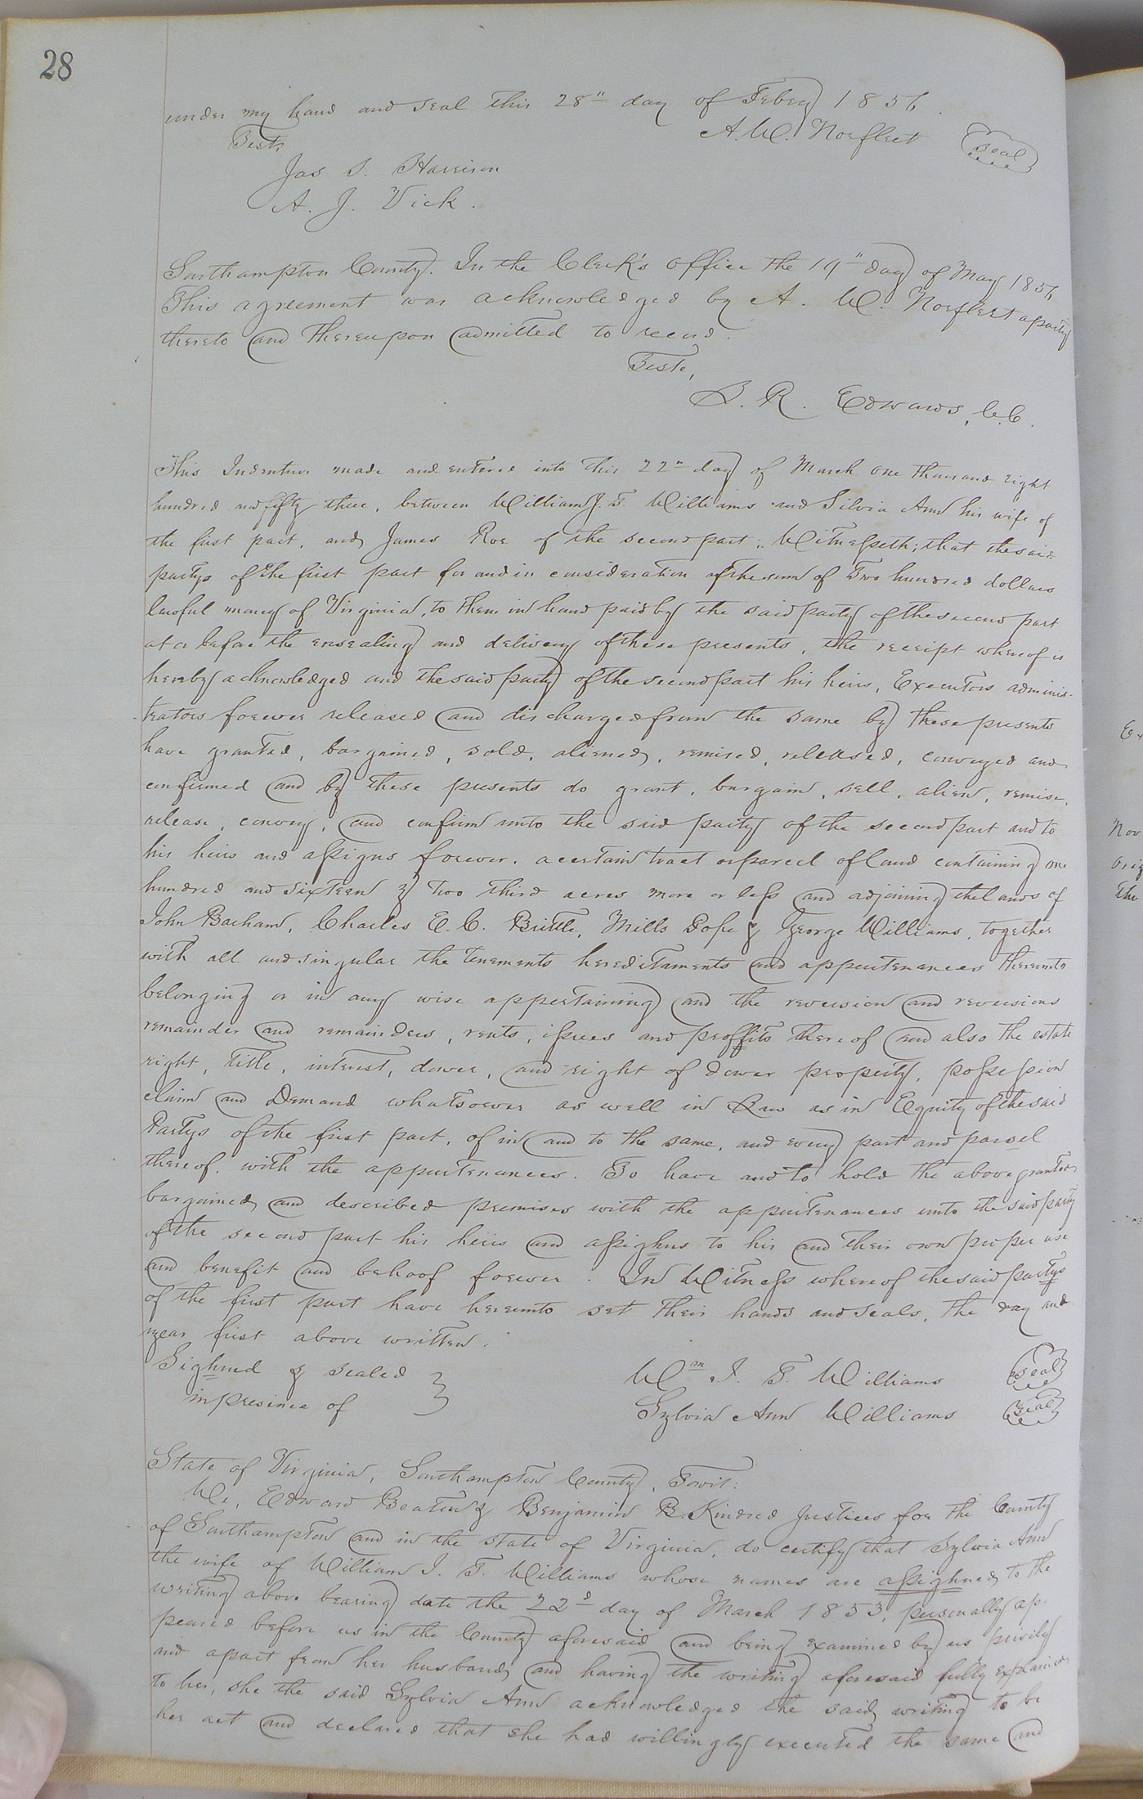 28
under my hand and seal this 28" day of Feby 1856.
Test, A. W. Norfleet seal
Jas S. Harrison
A. J. Vick.
Southampton County. In the Clerk's office the 19" day of May 1856
This agreement was acknowledged by A. W. Norfleet a party
thereto and thereupon admitted to record.
Teste,
L. R. Edwards, C.C.
This Indenture made and entered into this 22nd day of March one thousand eight
hundred and fifty three, between William J. T. Williams and Silvia Ann his wife of
the first part, and James Roe of the second part: Witnesseth; that the said
partys of the first part for and in consideration of the sum of Two hundred dollars
lawful money of Virginia, to them in hand paid by the said party of the second part
at or before the ensealing and delivery of these presents, the receipt whereof is
hereby acknowledged and the said party of the second part his heirs, Executors adminis-
trators forever released and discharged from the same by these presents
have granted, bargained, sold, aliened, remised, released, conveyed and
confirmed and by these presents do grant, bargain, sell, alien, remise,
release, convey, and confirm unto the said party of the second part and to
his heirs and assigns forever. a certain tract or parcel of land containing one
hundred and sixteen & two third acres more or less and adjoining the lands of
John Barham, Charles E. C. Brittle, Mills Pope & George Williams, together
with all and singular the tenements hereditaments and appurtenances thereunto
belonging or in any wise appertaining and the reversion and reversions
remainder and remainders, rents, issues and proffits thereof and also the estate
right, title, interest, dower, and right of dower property, possession
claim and Demand whatsoever as well in Law as in Equity of the said
Partys of the first part, of in and to the same, and every part and parsel
thereof. with the appurtenances. To have and to hold the above granted
bargained and described premises with the appurtenances unto the said party
of the second part his heirs and assighns to his and their own proper use
and benefit and behoof forever. In Witness whereof the said partys
of the first part have hereunto set their hands and seals, the day and
year first above written.
Sighned & sealed
in presence of
Wm J. T. Williams seal
Sylvia Ann Williams seal
State of Virginia, Southampton County, Towit:
We, Edward Beaton & Benjamin B. Kindred Justices for the County
of Southampton and in the state of Virginia, do certify that Sylvia Ann
the wife of William J. T. Williams whose names are assighned to the
writing above bearing date the 22d day of March 1853, personally ap-
peared before us in the County aforesaid and being examined by us privily
and apart from her husband and having the writing aforesaid fully explained
to her, she the said Sylvia Ann acknowledged the said writing to be
her act and declared that she had willingly executed the same and
Nov
the